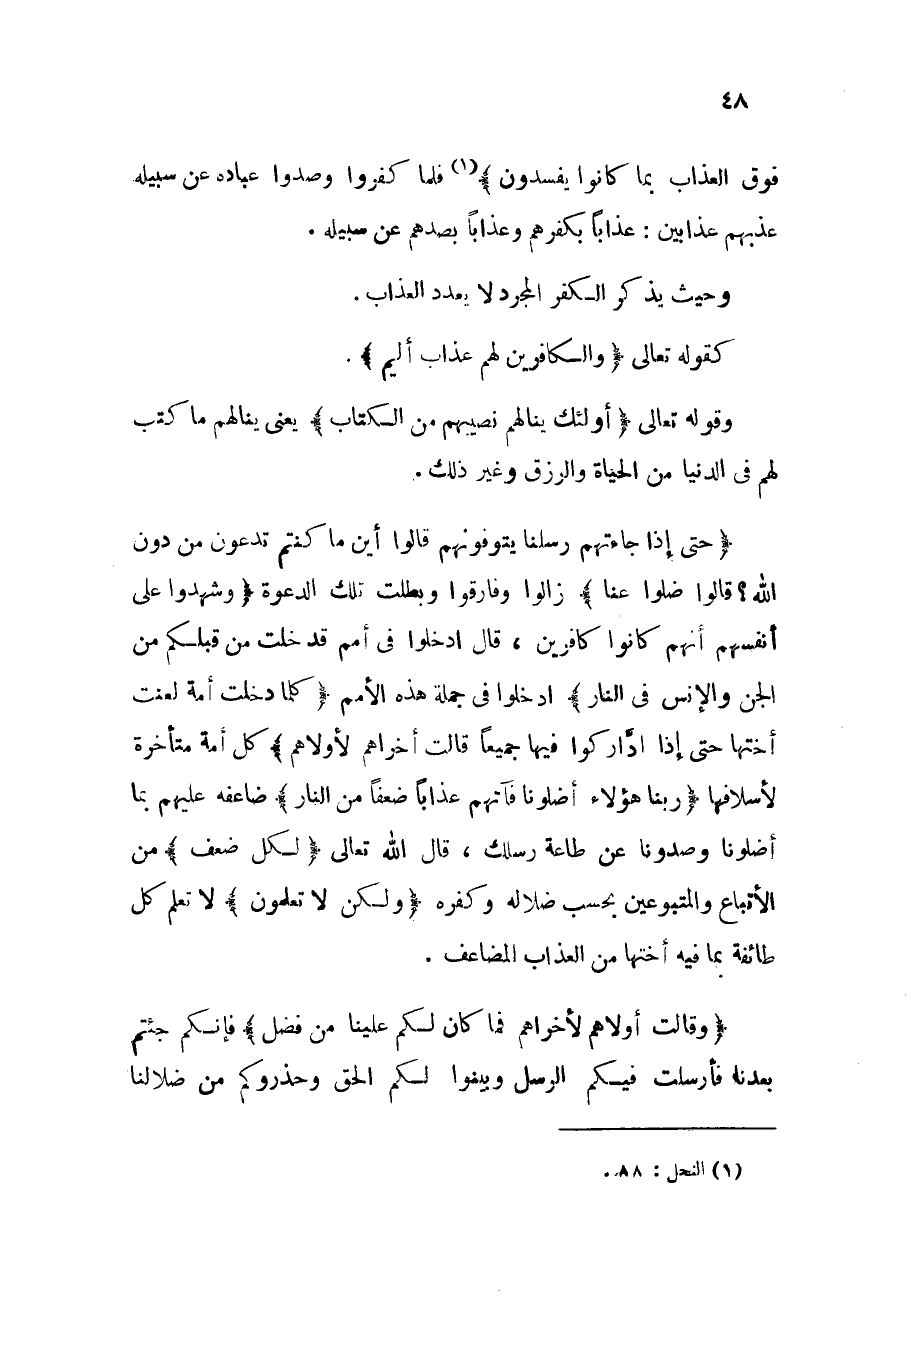 ٤٨
فوق العذاب بما كانوا يفسدون ﴾(١) فلما كفروا وصدوا عباده عن سبيله
عذبهم عذابين : عذاباً بكفرهم وعذاباً بصدهم عن سبيله .
وحيث يذكر الكفر المجرد لا يعدد العذاب .
كقوله تعالى ﴿ والكافرين لهم عذاب أليم ﴾ .
وقوله تعالى ﴿ أولئك ينالهم نصيبهم من الكتاب ﴾ يعنى ينالهم ما كتب
لهم فى الدنيا من الحياة والرزق وغير ذلك .
﴿ حتى إذا جاءتهم رسلنا يتوفونهم قالوا أين ما كنتم تدعون من دون
الله ؟ قالوا ضلوا عنا ﴾ زالوا وفارقوا وبطلت تلك الدعوة ﴿ وشهدوا على
أنفسهم أنهم كانوا كافرين ، قال ادخلوا فى أمم قد خلت من قبلكم من
الجن والإنس فى النار ﴾ ادخلوا فى جملة هذه الأمم ﴿ كلما دخلت أمة لعنت
أختها حتى إذا ادَّاركوا فيها جميعاً قالت أخراهم لأولاهم ﴾ كل أمة متأخرة
لأسلافها ﴿ ربنا هؤلاء أضلونا فآتهم عذاباً ضعفاً من النار ﴾ ضاعفه عليهم بما
أضلونا وصدونا عن طاعة رسلك ، قال الله تعالى ﴿ لكل ضعف ﴾ من
الأتباع والمتبوعين بحسب ضلاله وكفره ﴿ ولكن لا تعلمون ﴾ لا تعلم كل
طائفة بما فيه أختها من العذاب المضاعف .
﴿ وقالت أولاهم لأخراهم فما كان لكم علينا من فضل ﴾ فإنكم جئتم
بعدنا فأرسلت فيكم الرسل وبينوا لكم الحق وحذروكم من ضلالنا
(١) النحل : ٨٨ .